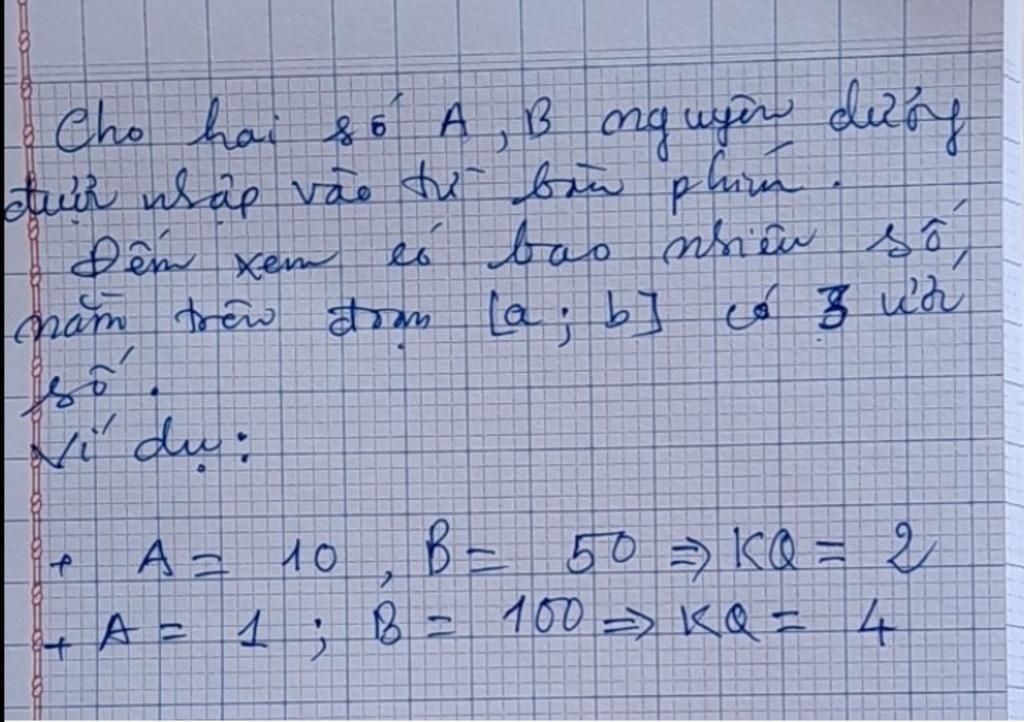 Cho hai số A, B nguyên dương
được nhập vào từ bàn phím.
Đếm xem có bao nhiêu số,
nằm trên đoạn [a; b] có 3 ước
số.
Ví dụ:
+ A = 10, B = 50 => KQ = 2
+ A = 1; B = 100 => KQ = 4